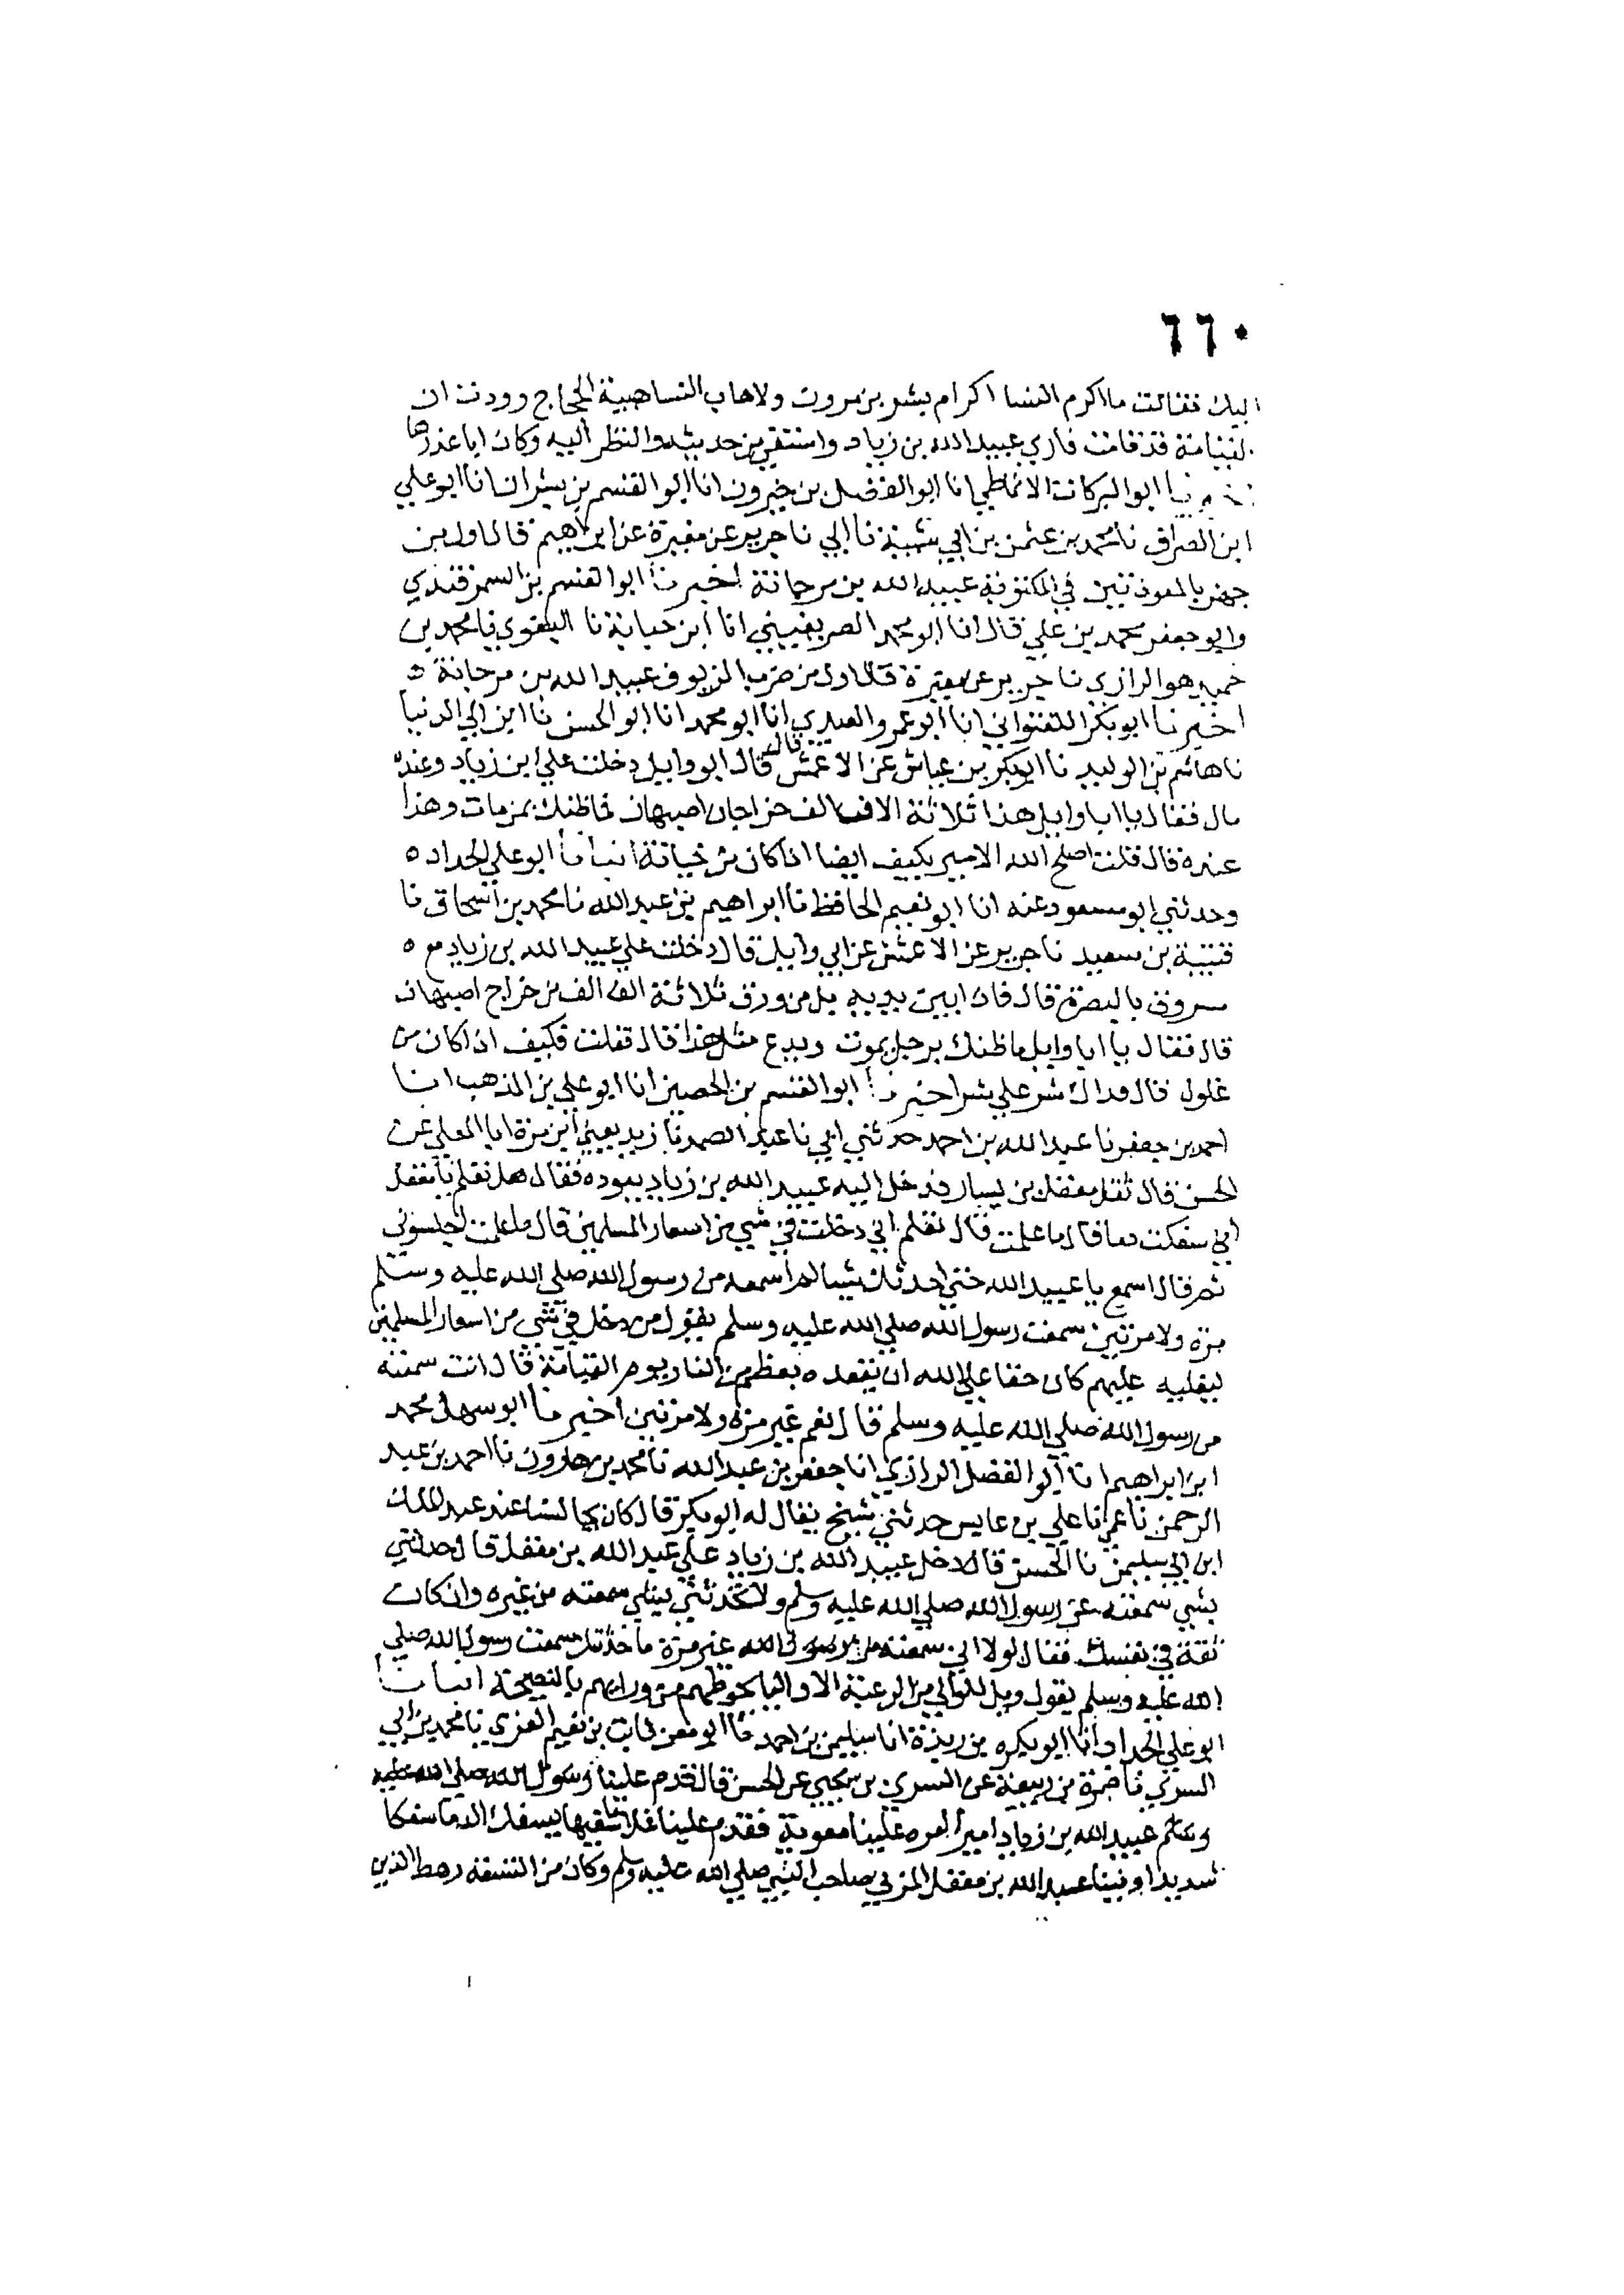 ٦٦٠
اليك فقالت ما اكرم النسا اكرام بشر بن مرون ولا هاب النسا هيبة الحجاج وودت ان
القيامة قد قامت فاري عبيد الله بن زياد واشتفي من حديثه والنظر اليه وكان ابا عذرها
ابو البركات الانماطي انا ابو الفضل بن خيرون انا ابو القسم بن بشران انا ابو علي
ابن الصراف نا محمد بن عثمن بن ابي شيبة نا ابي نا جرير عن مغيرة عن ابراهيم قال اول من
جهر بالمعوذتين في المكتوبة عبيد الله بن مرجانة اخبرنا ابو القسم بن السمرقندي
وابو جعفر محمد بن علي قال انا ابو محمد الصريفيني انا ابن حبابة نا البغوي نا محمد بن
حميد هو الرازي نا جرير عن مغيرة قال اول من ضرب الزيوف عبيد الله بن مرجانة ه
اخبرنا ابو بكر اللفتواني انا ابو عمرو العبدي انا ابو محمد انا ابو الحسن نا ابن ابي الدنيا
نا هاشم بن الوليد نا ابو بكر بن عياش عن الاعمش قال قال ابو وايل دخلت علي ابن زياد وعنده
مال فقال يا ابا وايل هذا ثلاثة الاف الف خراجان اصبهان فما ظنك بمن مات وهذا
عنده قال قلت اصلح الله الامير بكيف ايضا اذا كان من خيانة انبانا ابو علي الحداد ه
وحدثني ابو مسعود عنه انا ابو نعيم الحافظ نا ابراهيم بن عبد الله نا محمد بن اسحاق نا
قتيبة بن سعيد نا جرير عن الاعمش عن ابي وايل قال دخلت علي عبيد الله بن زياد مع ه
مسروق بالبصرة قال فاذا بين يديه تل من ورق ثلاثة الف الف من خراج اصبهان
قال فقال يا ابا وايل ما ظنك برجل يموت ويدع مثل هذا قال قفلت فكيف اذا كان من
غلول قال فذاك شر علي شر اخبرنا ابو القسم بن الحصين انا ابو علي بن المذهب انا
احمد بن جعفر نا عبد الله بن احمد حدثني ابي نا عبد الصمد نا زيد يعني ابن مرة ابا المعلي عن
الحسن قال ثقل معقل بن يسار فدخل اليه عبيد الله بن زياد يعوده فقال هل تعلم يا معقل
اني سفكت دما قال ما علمت قال تعلم اني دخلت في شي من اسعار المسلمين قال ما علمت اجلسوني
ثم قال اسمع يا عبيد الله حتي احدثك شيا لم اسمعه من رسول الله صلي الله عليه وسلم
مرة ولا مرتين سمعت رسول الله صلي الله عليه وسلم يقول من دخل في شي من اسعار المسلمين
ليغليه عليهم كان حقا علي الله ان يقعده بعظم من النار يوم القيامة قال انت سمعته
من رسول الله صلي الله عليه وسلم قال نعم غير مرة ولا مرتين اخبرنا ابو سهل محمد
ابن ابراهيم انا ابو الفضل الرازي انا جعفر بن عبد الله نا محمد بن هارون نا احمد بن عبد
الرحمن نا عمي نا علي بن عابس حدثني شيخ يقال له ابو بكر قال كان يجالسنا عند عبد الملك
ابن ابي سليمن نا الحسن قال دخل عبيد الله بن زياد علي عبد الله بن مغفل قال حدثني
بشي سمعته عن رسول الله صلي الله عليه وسلم ولا تحدثني بشي سمعته من غيره وان كان
ثقة في نفسك فقال لولا اني سمعته من رسول الله غير مرة ما حدثتك سمعت رسول الله صلي
الله عليه وسلم يقول ويل للوالي من الرعية الا واليا يحوطهم من ورايهم بالنصيحة انبانا
ابو علي الحداد انا ابو بكره بن ريذة انا سليمن بن احمد نا ابو معن ثابت بن نعيم الغزي نا محمد بن ابي
السري نا ضمرة بن ربيعة عن السري بن يحيي عن الحسن قال قدم علينا رسول الله صلي الله عليه
وسلم عبيد الله بن زياد اميرا امره علينا معوية فقدم علينا غلاما سفيها يسفك الدما سفكا
شديدا وفينا عبد الله بن مغفل المزني صاحب النبي صلي الله عليه وسلم وكان من التسعة رهط الذين